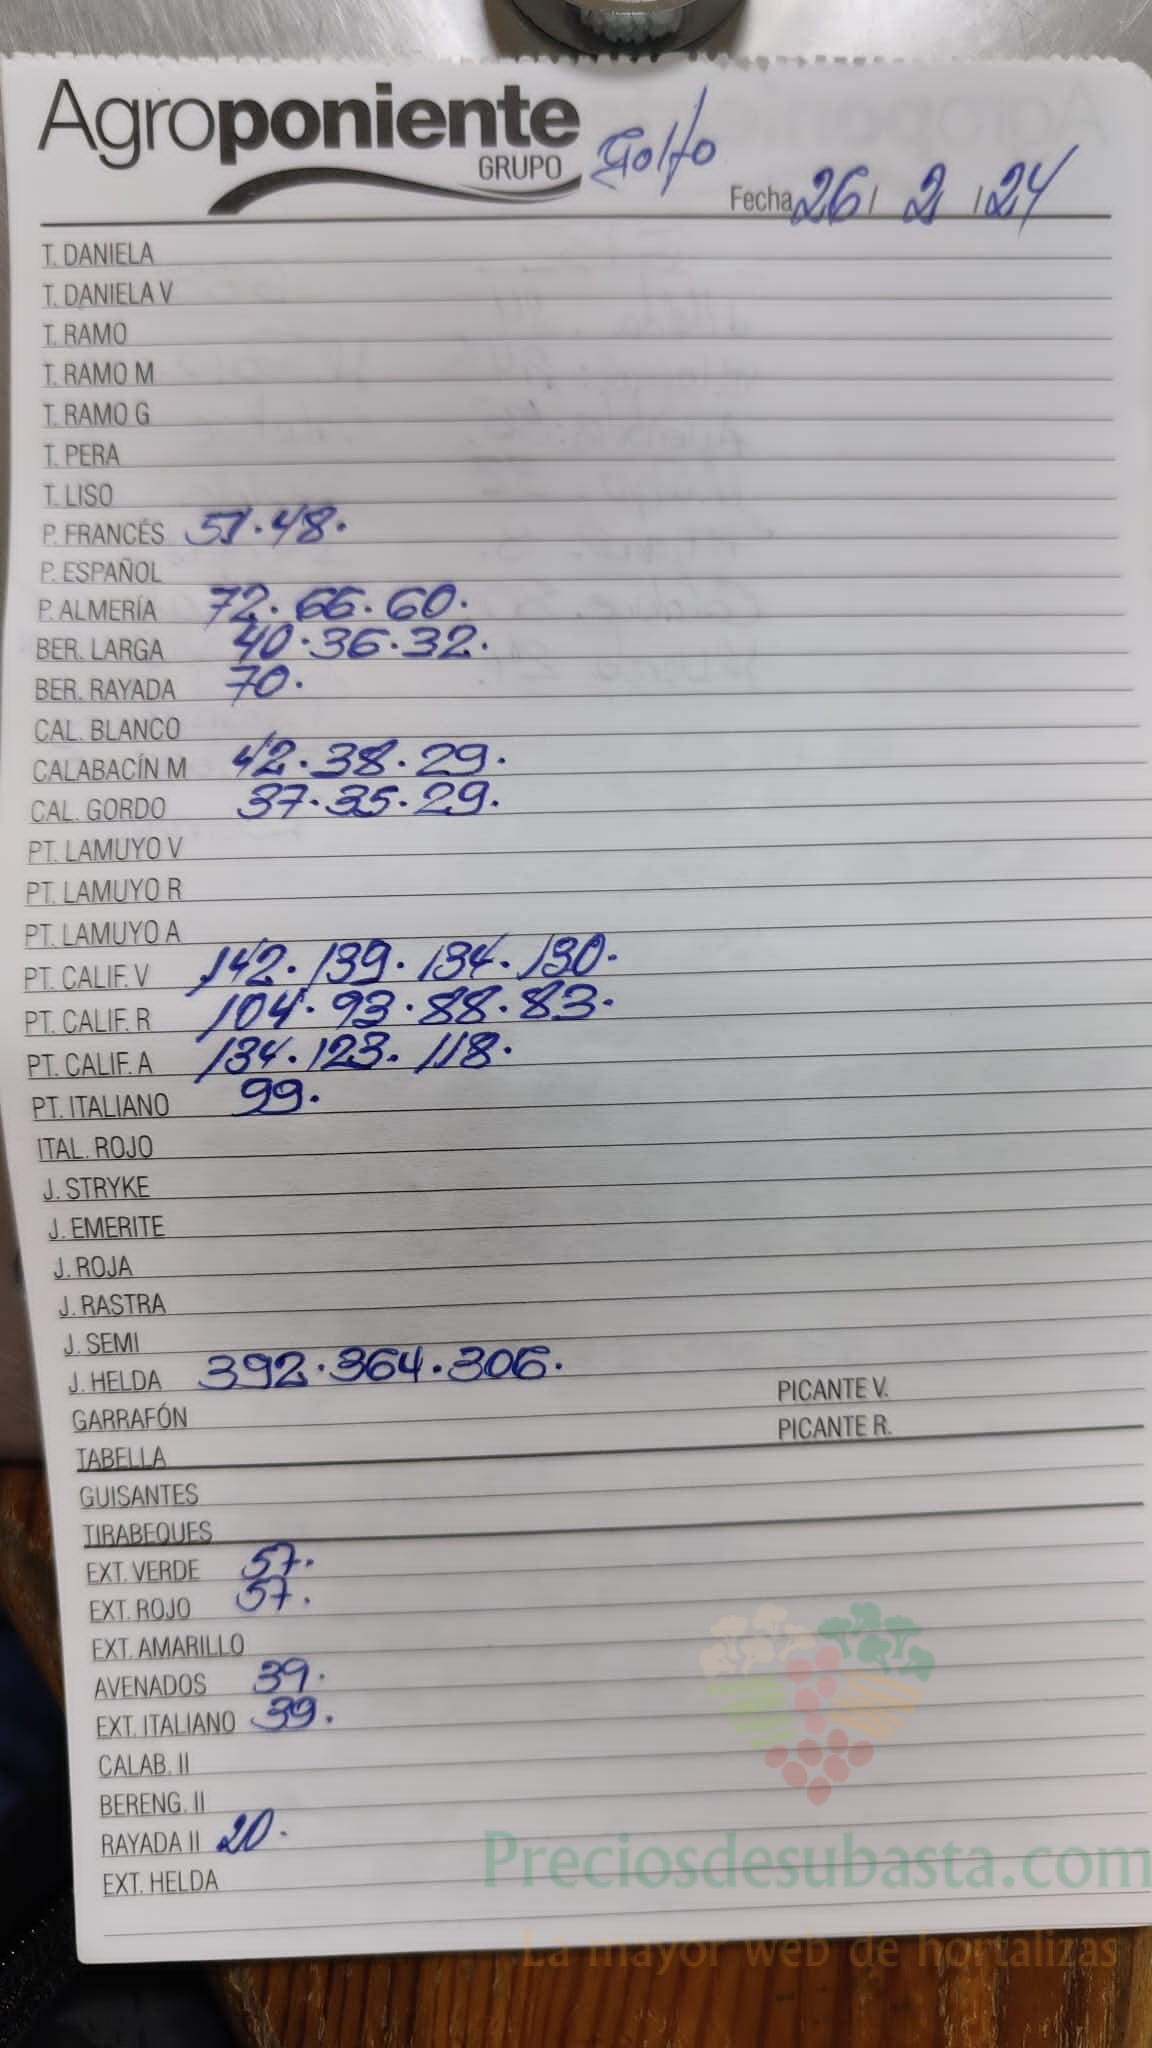 Agroponiente
GRUPO
Golfo
Fecha 26 / 2 / 24
T. DANIELA
T. DANIELA V
T. RAMO
T. RAMO M
T. RAMO G
T. PERA
T. LISO
P. FRANCÉS 51.48.
P. ESPAÑOL
P. ALMERÍA 72.66.60.
BER. LARGA 40.36.32.
BER. RAYADA 70.
CAL. BLANCO
CALABACÍN M 42.38.29.
CAL. GORDO 37.35.29.
PT. LAMUYO V
PT. LAMUYO R
PT. LAMUYO A
PT. CALIF. V 142.139.134.130.
PT. CALIF. R 104.93.88.83.
PT. CALIF. A 134.123.118.
PT. ITALIANO 99.
ITAL. ROJO
J. STRYKE
J. EMERITE
J. ROJA
J. RASTRA
J. SEMI
J. HELDA 392.364.306.
GARRAFÓN PICANTE V.
TABELLA PICANTE R.
GUISANTES
TIRABEQUES
EXT. VERDE 57.
EXT. ROJO 57.
EXT. AMARILLO
AVENADOS 39.
EXT. ITALIANO 39.
CALAB. II
BERENG. II
RAYADA II 20.
EXT. HELDA
Preciosdesubasta.com
La mayor web de hortalizas